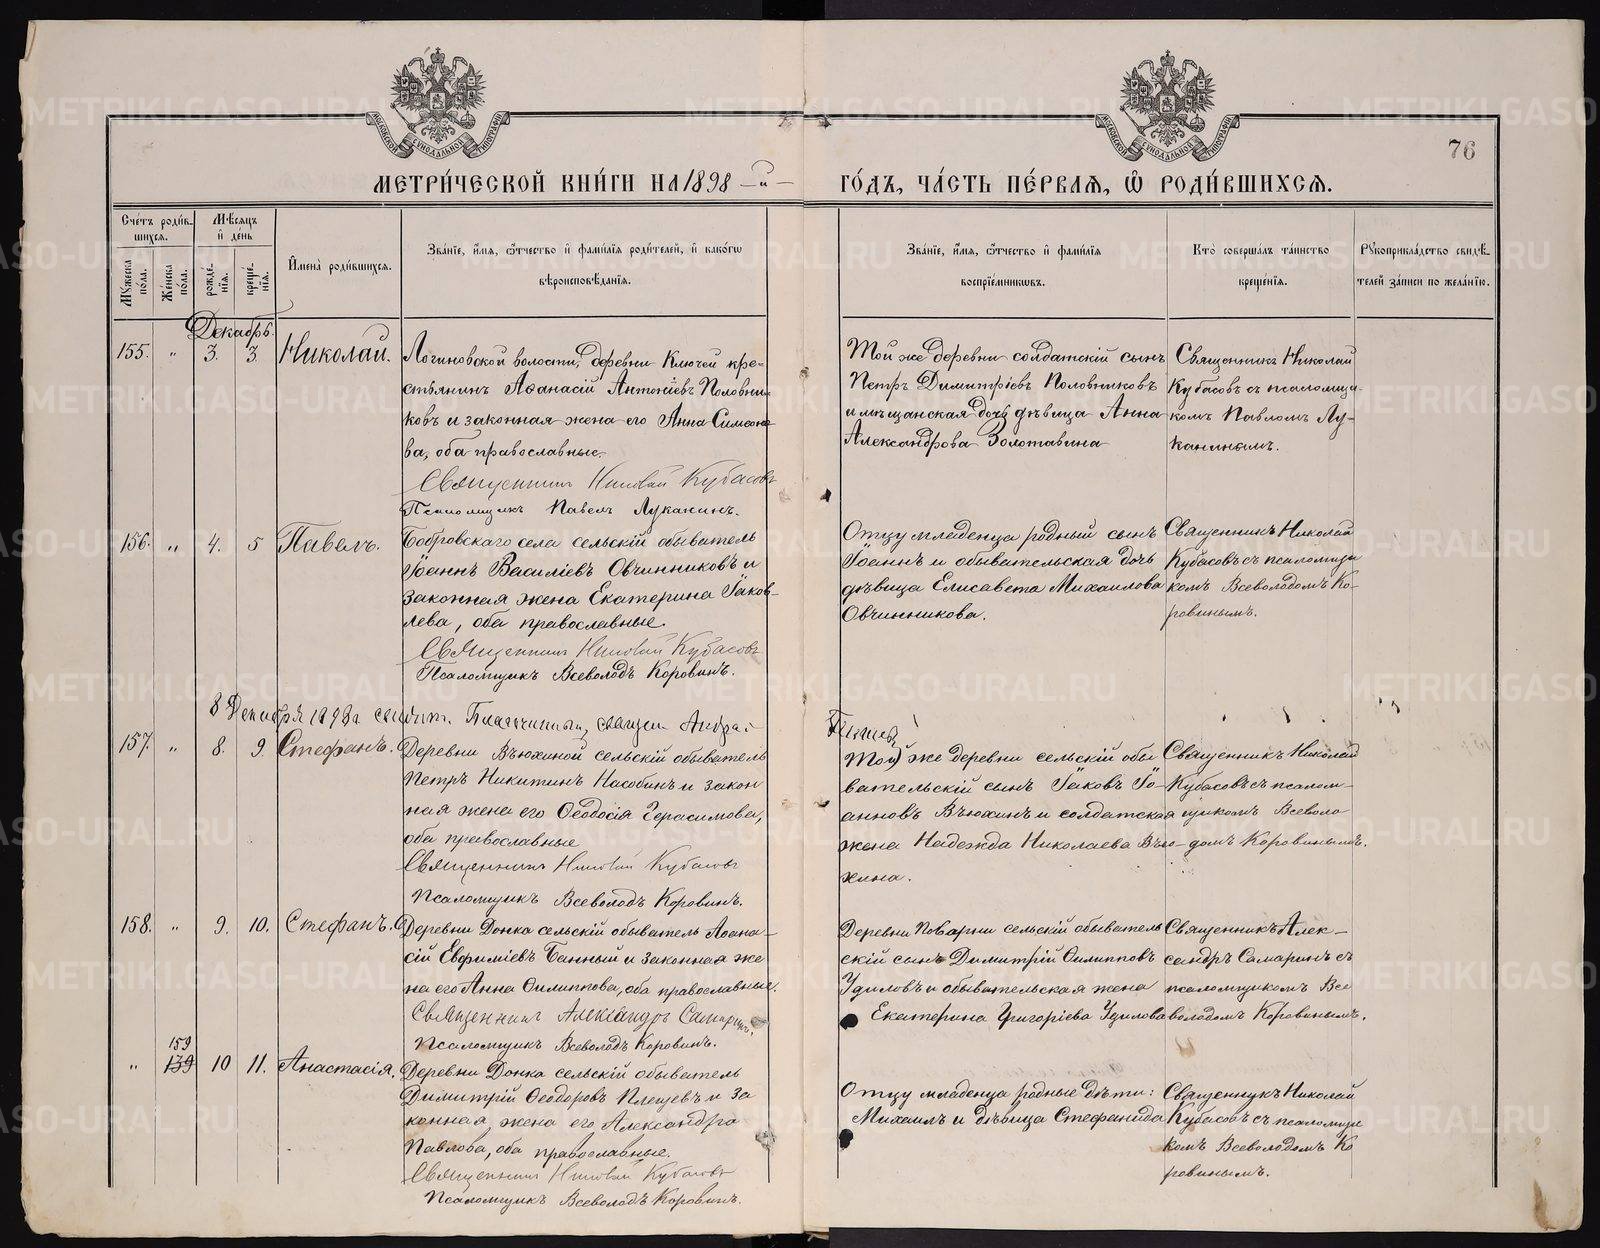 76
МЕТРИ́ЧЕСКОЙ КНИ́ГИ НА 1898 -й- ГО́ДЪ, ЧА́СТЬ ПЕ́РВАЯ, Ѿ РОДИ́ВШИХСЯ.
Сче́тъ роди́в-
шихся.
Му́жеска по́ла.
Же́нска по́ла.
Мѣ́сяцъ
и҆ де́нь
рожде́-
нїя.
креще́-
нїя.
И҆мена̀ роди́вшихся.
Зва́нїе, и҆́мя, ѻ҆́тчество и҆ фами́лїя роди́телей, и҆ како́гѡ
вѣроисповѣ́данїя.
Зва́нїе, и҆́мя, ѻ҆́тчество и҆ фами́лїя
воспрїе́мникѡвъ.
Кто̀ соверша́лъ та́инство
креще́нїя.
Рꙋкоприкла́дство свидѣ́-
телей за́писи по жела́нїю.
Декабрь.
155. " 3. 3. Николай.
Логиновской волости, деревни Ключей кре-
стьянинъ Аѳанасій Антоніевъ Половни-
ковъ и законная жена его Анна Симеоно-
ва, оба православные.
Священникъ Николай Кубасовъ
Псаломщикъ Павелъ Луканинъ.
Той же деревни солдатскій сынъ
Петръ Димитріевъ Половниковъ
и мѣщанская дочь дѣвица Анна
Александрова Золотавина
Священникъ Николай
Кубасовъ съ псаломщи-
комъ Павломъ Лу-
канинымъ.
156. " 4. 5 Павелъ.
Бобровскаго села сельскій обыватель
Іоаннъ Василіевъ Овчинниковъ и
законная жена Екатерина Іаков-
лева, оба православные.
Священникъ Николай Кубасовъ
Псаломщикъ Всеволодъ Коровинъ.
Отцу младенца родный сынъ
Іоаннъ и обывательская дочь
дѣвица Елисавета Михаилова
Овчинникова.
Священникъ Николай
Кубасовъ съ псаломщи
комъ Всеволодомъ Ко-
ровинымъ.
8 Декабря 1898 г. свидѣт. Благочинный, священ. Андрей
157. " 8. 9. Стефанъ.
Деревни Вьюхиной сельскій обыватель
Петръ Никитинъ Насобинъ и закон
ная жена его Ѳеодосія Герасимова,
оба православные
Священникъ Николай Кубасовъ
Псаломщикъ Всеволодъ Коровинъ.
Той же деревни сельскій обы
вательскій сынъ Іаковъ Іо-
анновъ Вьюхинъ и солдатская
жена Надежда Николаева Вью-
хина.
Священникъ Николай
Кубасовъ съ псалом-
щикомъ Всеволо
домъ Коровинымъ.
158. " 9. 10. Стефанъ.
Деревни Донка сельскій обыватель Аѳана-
сій Евфиміевъ Банный и законная же
на его Анна Филиппова, оба православные.
Священникъ Александръ Самаринъ.
Псаломщикъ Всеволодъ Коровинъ.
Деревни Поварни сельскій обыватель
скій сынъ Димитрій Филипповъ
Удиловъ и обывательская жена
Екатерина Григоріева Удилова
Священникъ Алек-
сандръ Самаринъ съ
псаломщикомъ Все
володомъ Коровинымъ.
" 159 139 10 11. Анастасія.
Деревни Донка сельскій обыватель
Димитрій Ѳеодоровъ Плещевъ и за
конная жена его Александра
Павлова, оба православные.
Священникъ Николай Кубасовъ
Псаломщикъ Всеволодъ Коровинъ.
Отцу младенца родные дѣти:
Михаилъ и дѣвица Стефанида
Священникъ Николай
Кубасовъ съ псаломщи
комъ Всеволодомъ Ко
ровинымъ.